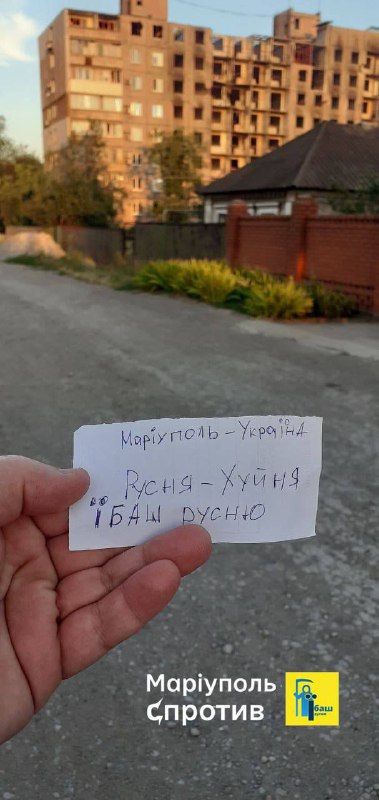 Маріуполь – Україна
Русня – Хуйня
Їбаш русню
Маріуполь
Спротив
Їбаш
русню